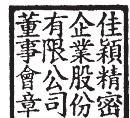 佳穎精密
企業股份
有限公司
董事會章